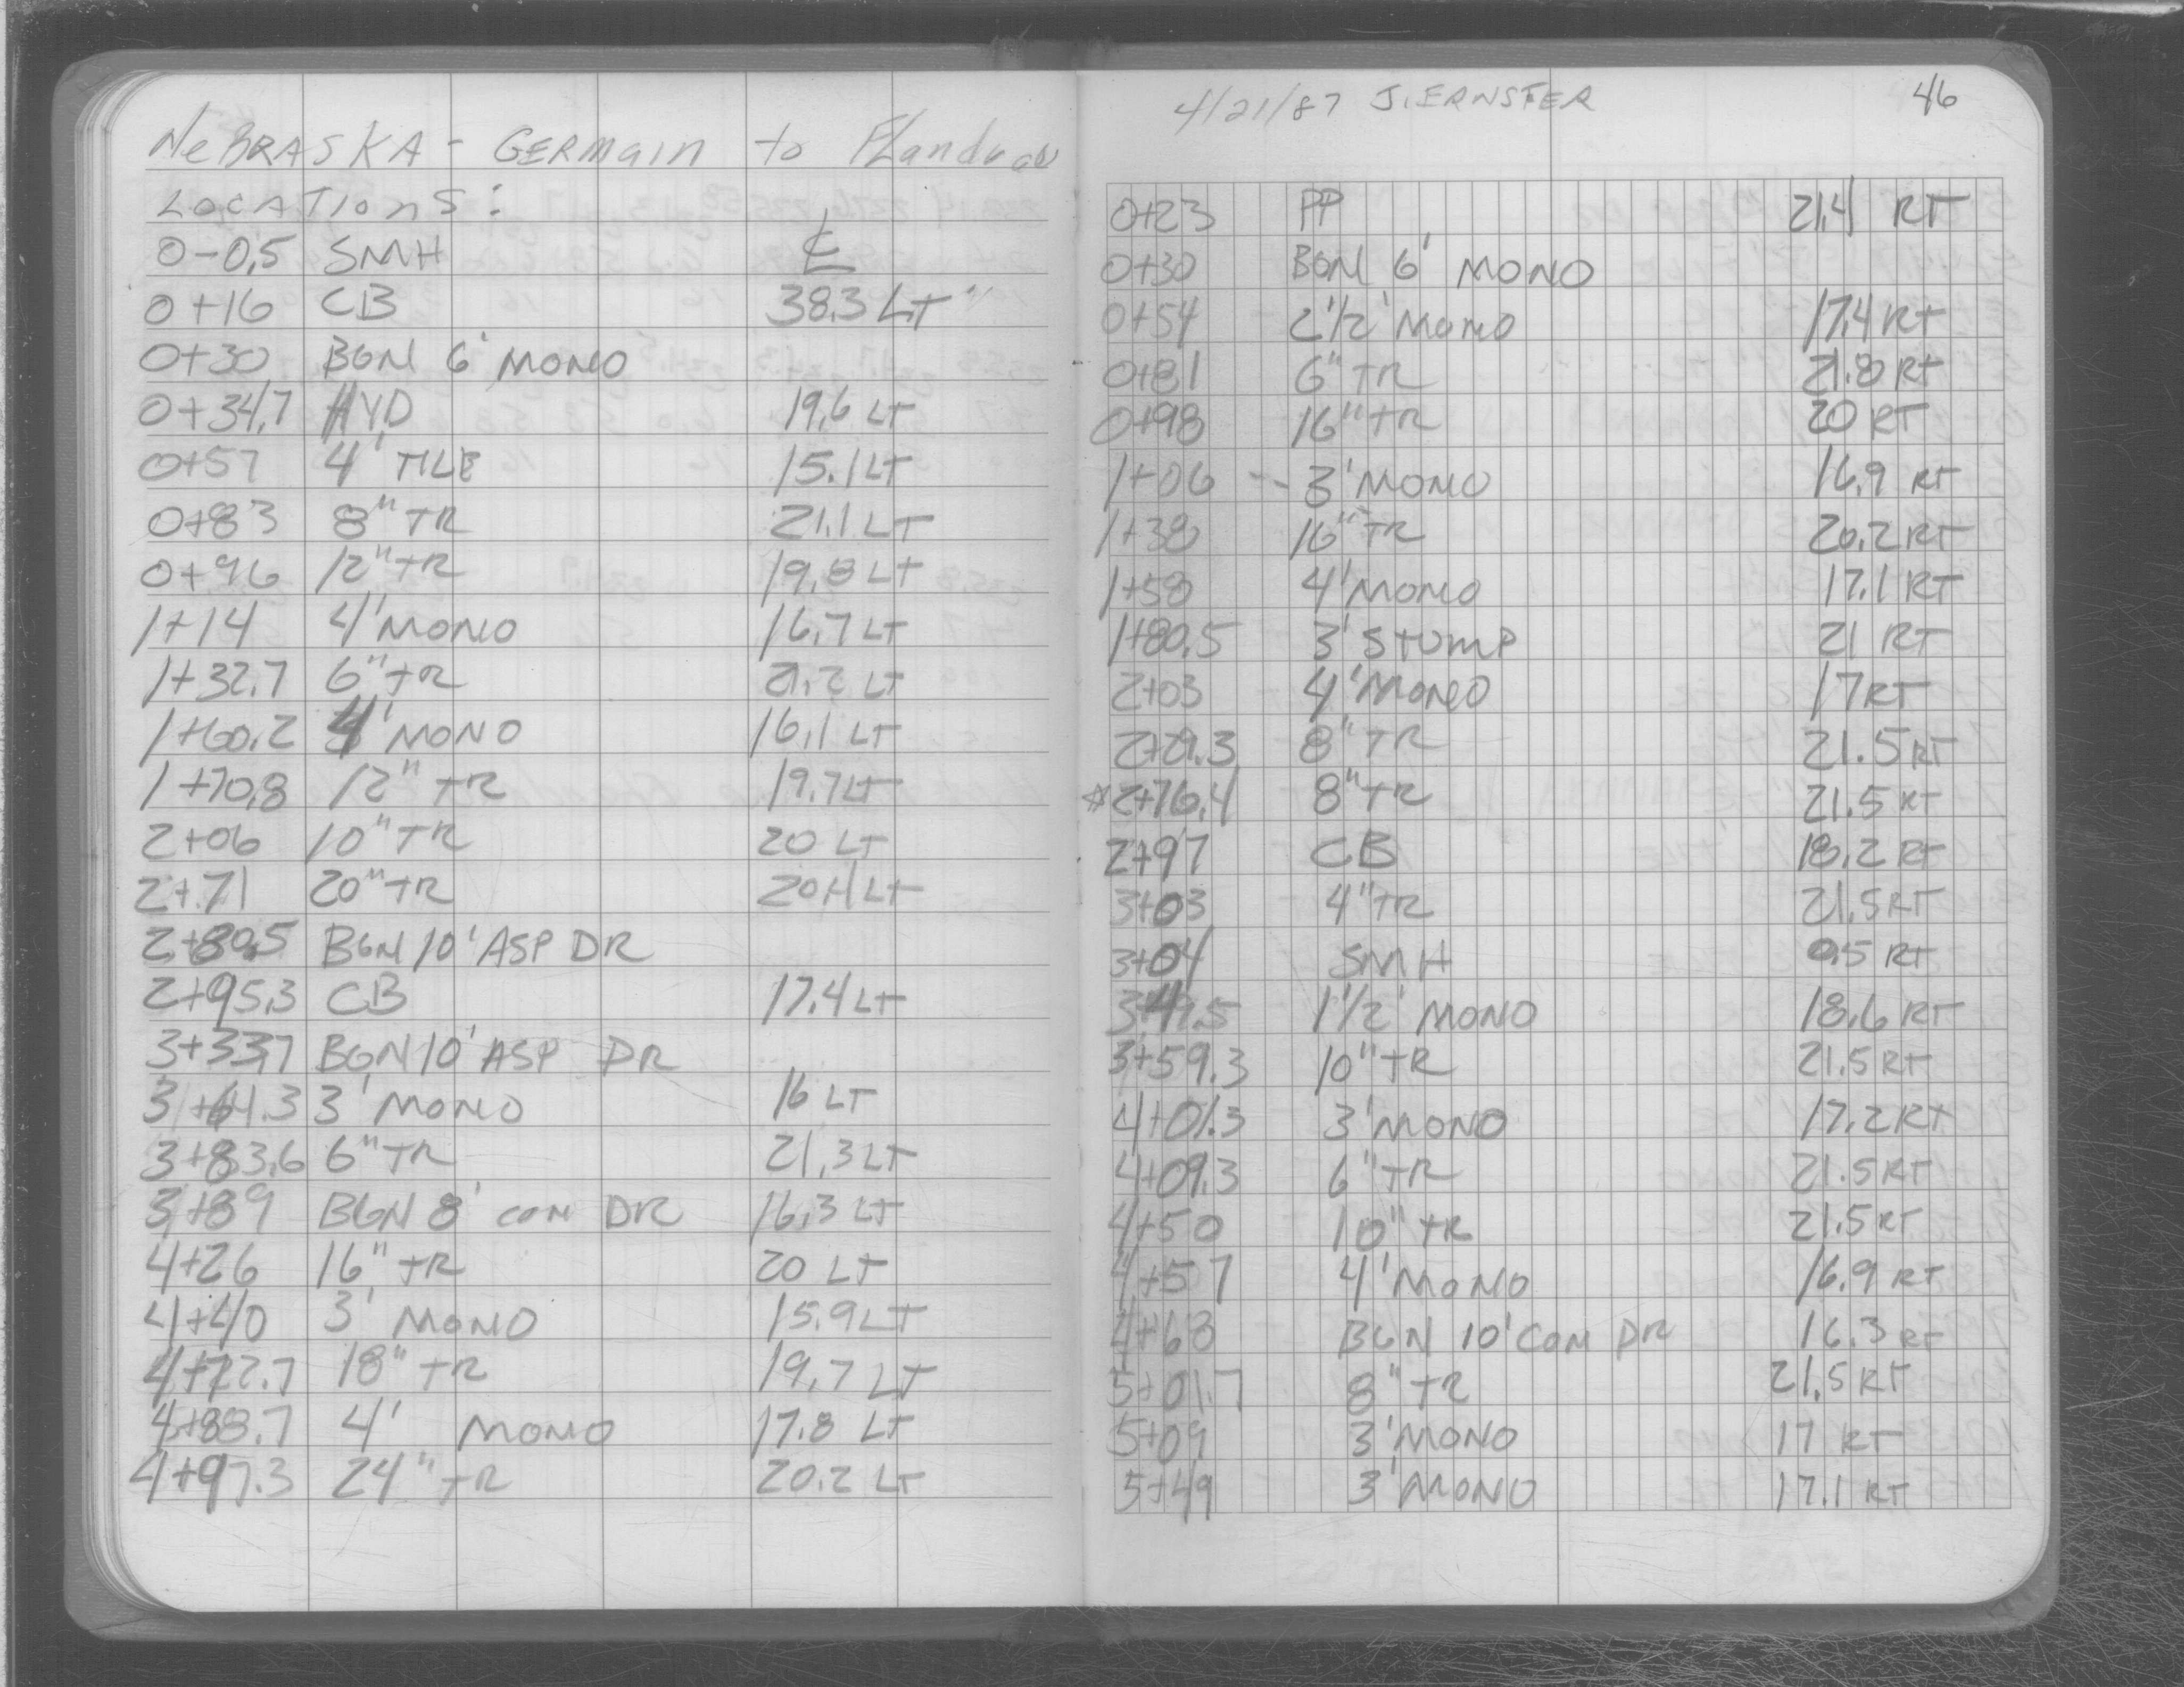 NeBRASKA - GERMAIN to Flandrau
LOCATIONS:
0-0.5 SMH ℄
0+16 CB 38.3 LT
0+30 BGN 6' MONO
0+34.7 HYD 19.6 LT
0+57 4' TILE 15.1 LT
0+83 8" TR 21.1 LT
0+96 12" TR 19.8 LT
1+14 4' MONO 16.7 LT
1+32.7 6" TR 21.2 LT
1+60.2 4' MONO 16.1 LT
1+70.8 12" TR 19.7 LT
2+06 10" TR 20 LT
2+71 20" TR 20.1 LT
2+80.5 BGN 10' ASP DR
2+95.3 CB 17.4 LT
3+33.7 BGN 10' ASP DR
3+61.3 3' MONO 16 LT
3+83.6 6" TR 21.3 LT
3+89 BGN 8' CON DR 16.3 LT
4+26 16" TR 20 LT
4+40 3' MONO 15.9 LT
4+72.7 18" TR 19.7 LT
4+88.7 4' MONO 17.8 LT
4+97.3 24" TR 20.2 LT
4/21/87 J. ERNSTER 46
0+23 PP 21.4 RT
0+30 BGN 6' MONO
0+54 2 1/2' MONO 17.4 RT
0+81 6" TR 21.8 RT
0+98 16" TR 20 RT
1+06 -- 3' MONO 16.9 RT
1+38 16" TR 20.2 RT
1+58 4' MONO 17.1 RT
1+80.5 3' STUMP 21 RT
2+03 4' MONO 17 RT
8" TR 21.5 RT
*2+76.4 8" TR 21.5 RT
2+97 CB 18.2 RT
3+03 4" TR 21.5 RT
3+04 SMH 0.5 RT
1 1/2' MONO 18.6 RT
3+59.3 10" TR 21.5 RT
4+01.3 3' MONO 17.2 RT
4+09.3 6" TR 21.5 RT
4+50 10" TR 21.5 RT
4+57 4' MONO 16.9 RT
4+68 BGN 10' CON DR 16.3 RT
5+01.7 8" TR 21.5 RT
5+09 3' MONO 17 RT
5+49 3' MONO 17.1 RT